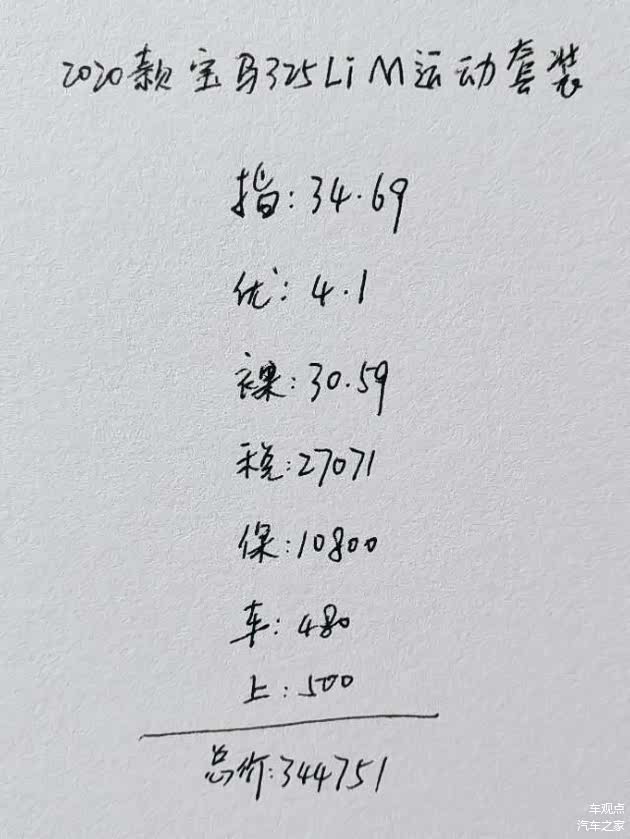 2020款宝马325Li M运动套装
指:34.69
优:4.1
裸:30.59
税:27071
保:10800
车:480
上:500
总价:344751
车观点
汽车之家